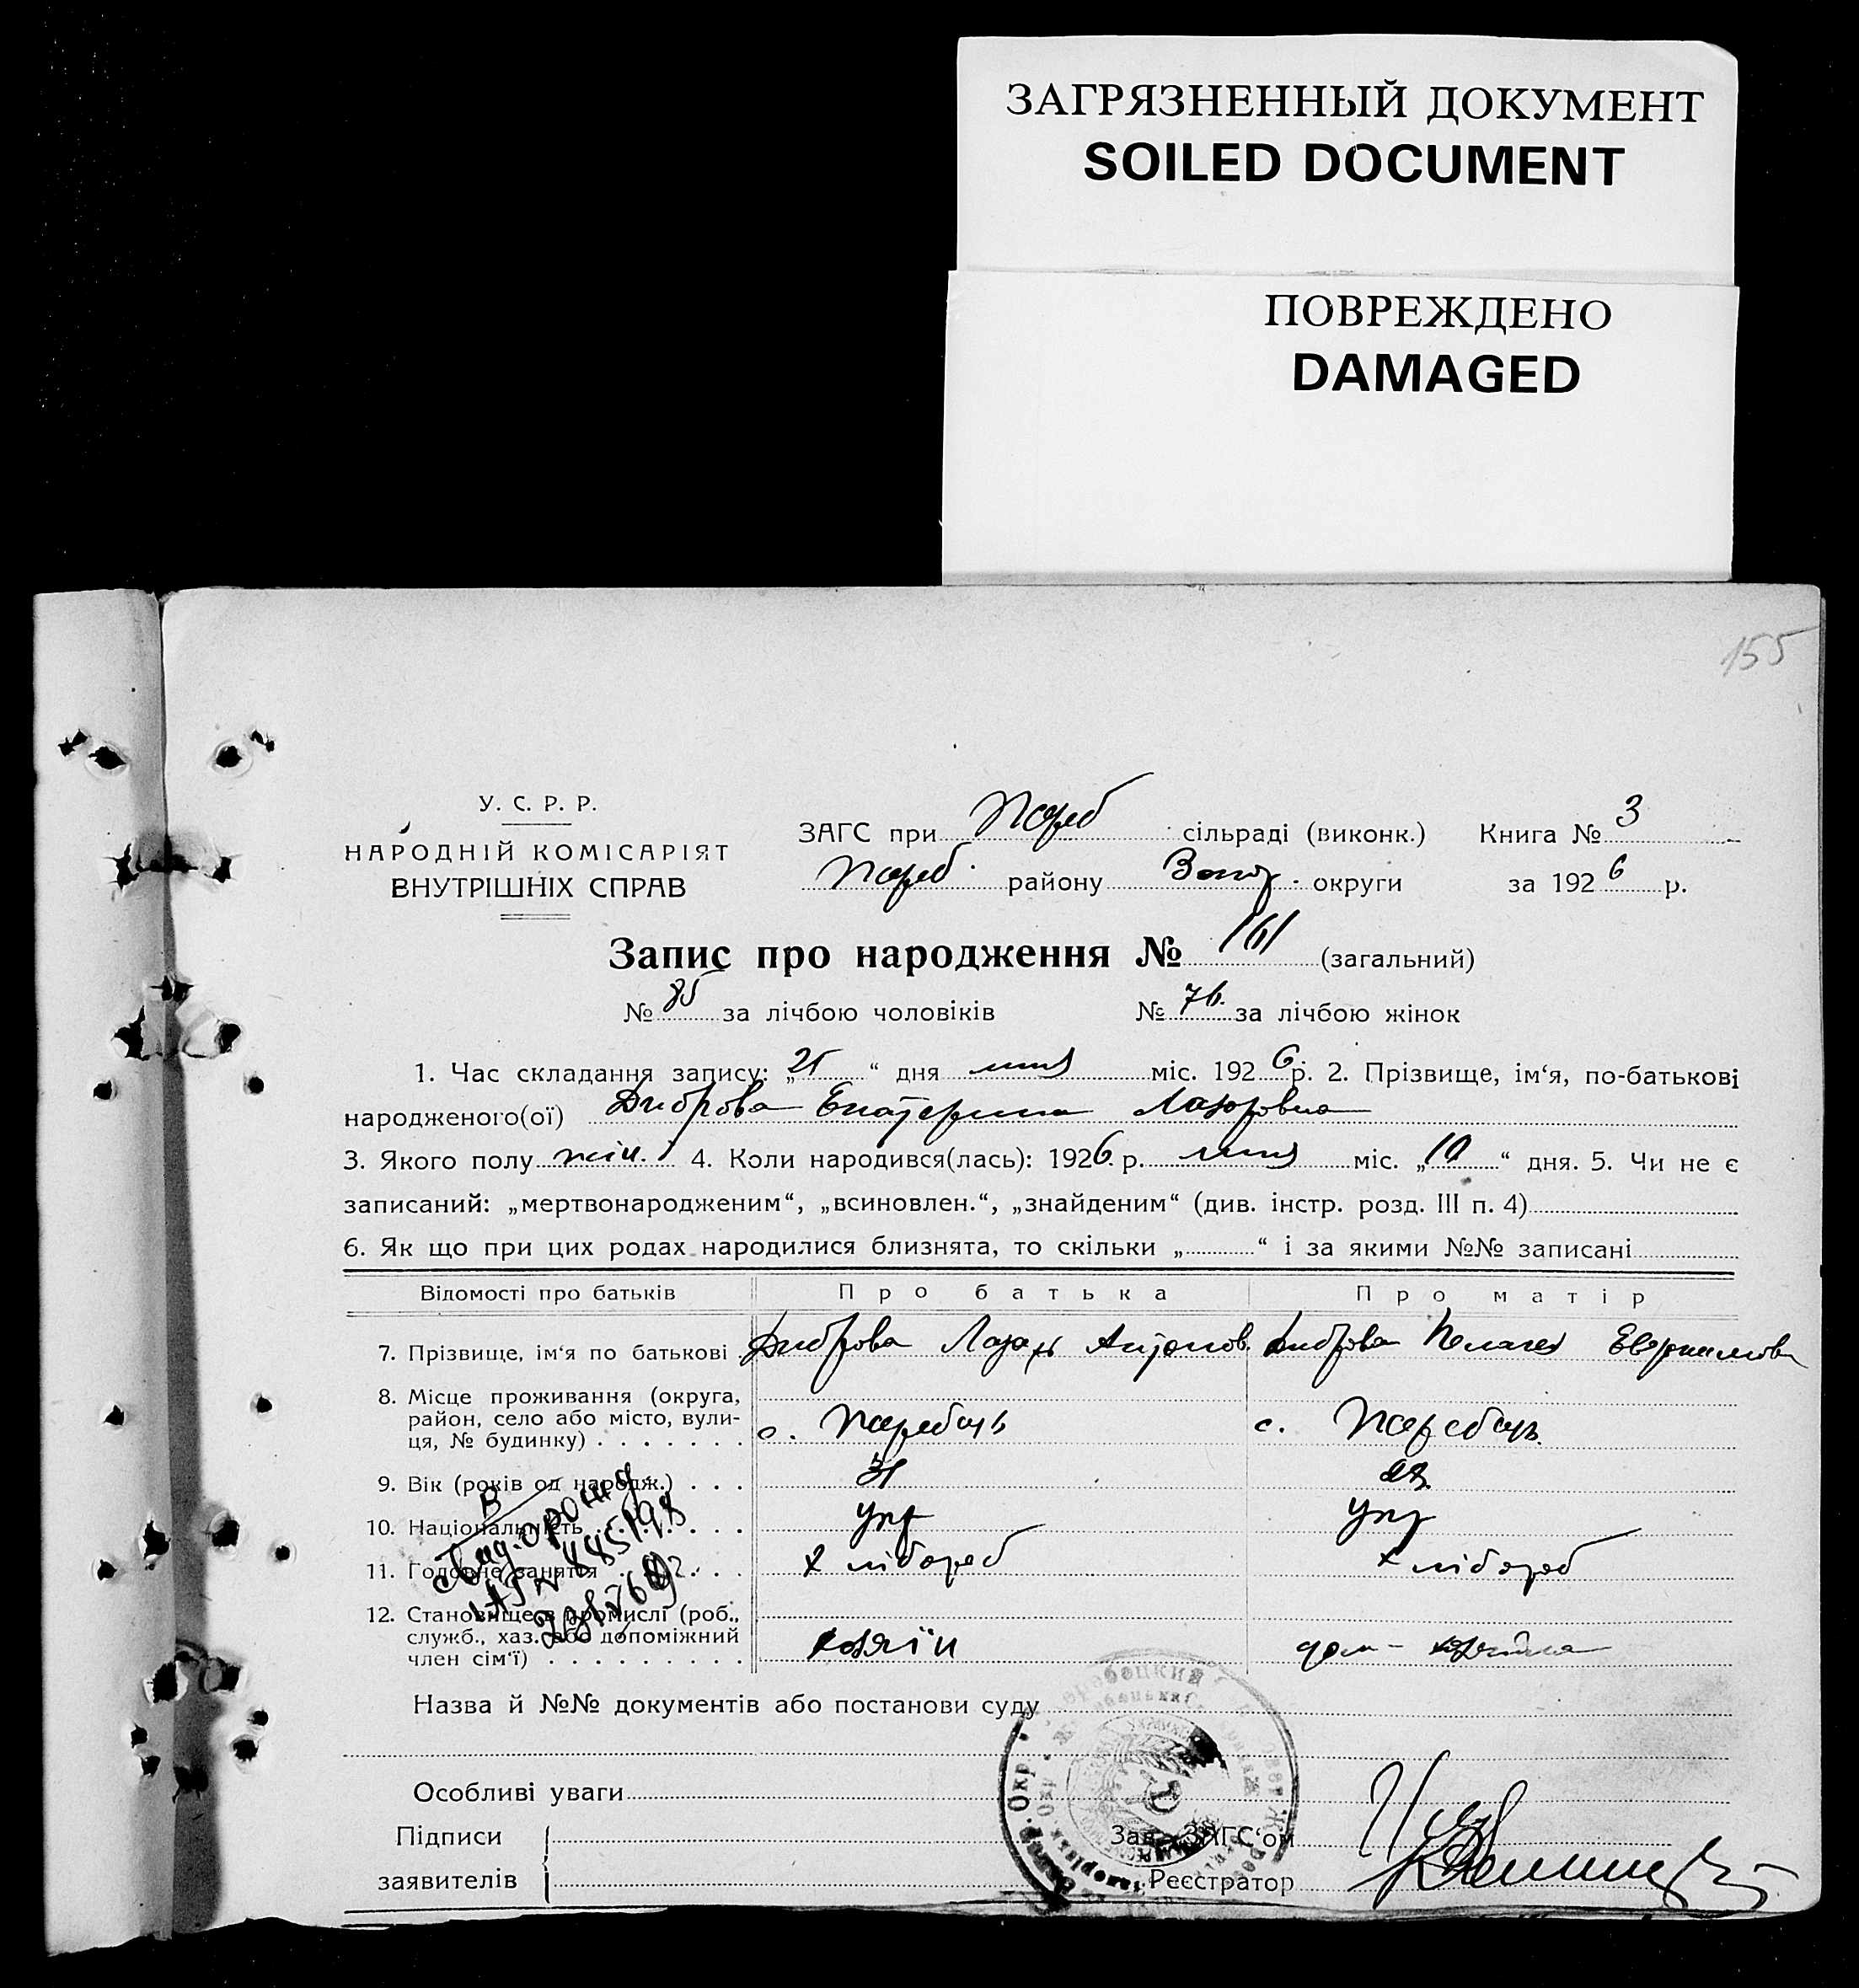 ЗАГРЯЗНЕННЫЙ ДОКУМЕНТ
SOILED DOCUMENT
ПОВРЕЖДЕНО
DAMAGED
155
У. С. Р. Р.
НАРОДНІЙ КОМІСАРІЯТ
ВНУТРІШНІХ СПРАВ
ЗАГС при Жереб сільраді (виконк.) Книга № 3
Жереб. району Запор. округи за 1926 р.
Запис про народження № 161 (загальний)
№ 85 за лічбою чоловіків № 76 за лічбою жінок
1. Час складання запису: „ “ дня міс. 1926 р. 2. Прізвище, ім‘я, по-батькові
народженого(ої) Диброва Екатерина Лазаровна
3. Якого полу жін. 4. Коли народився(лась): 1926 р. міс. „10“ дня. 5. Чи не є
записаний: „мертвонародженим“, „всиновлен.“, „знайденим“ (див. інстр. розд. III п. 4)
6. Як що при цих родах народилися близнята, то скільки „ “ і за якими №№ записані
Відомості про батьків Про батька Про матір
7. Прізвище, ім‘я по батькові Диброва Лазарь Антонов. Диброва Пелагея
8. Місце проживання (округа,
район, село або місто, вули-
ця, № будинку) с. Жеребець с. Жеребець
9. Вік (років од народж.) 31
10. Національність Укр Укр
11. Головне заняття Хлібороб Хлібороб
12. Становище в промислі (роб.,
служб., хаз. або допоміжний
член сім‘ї) хазяїн дом-
Назва й №№ документів або постанови суду
Особливі уваги
Підписи
заявителів
Зав. ЗАГС‘ом
Реєстратор